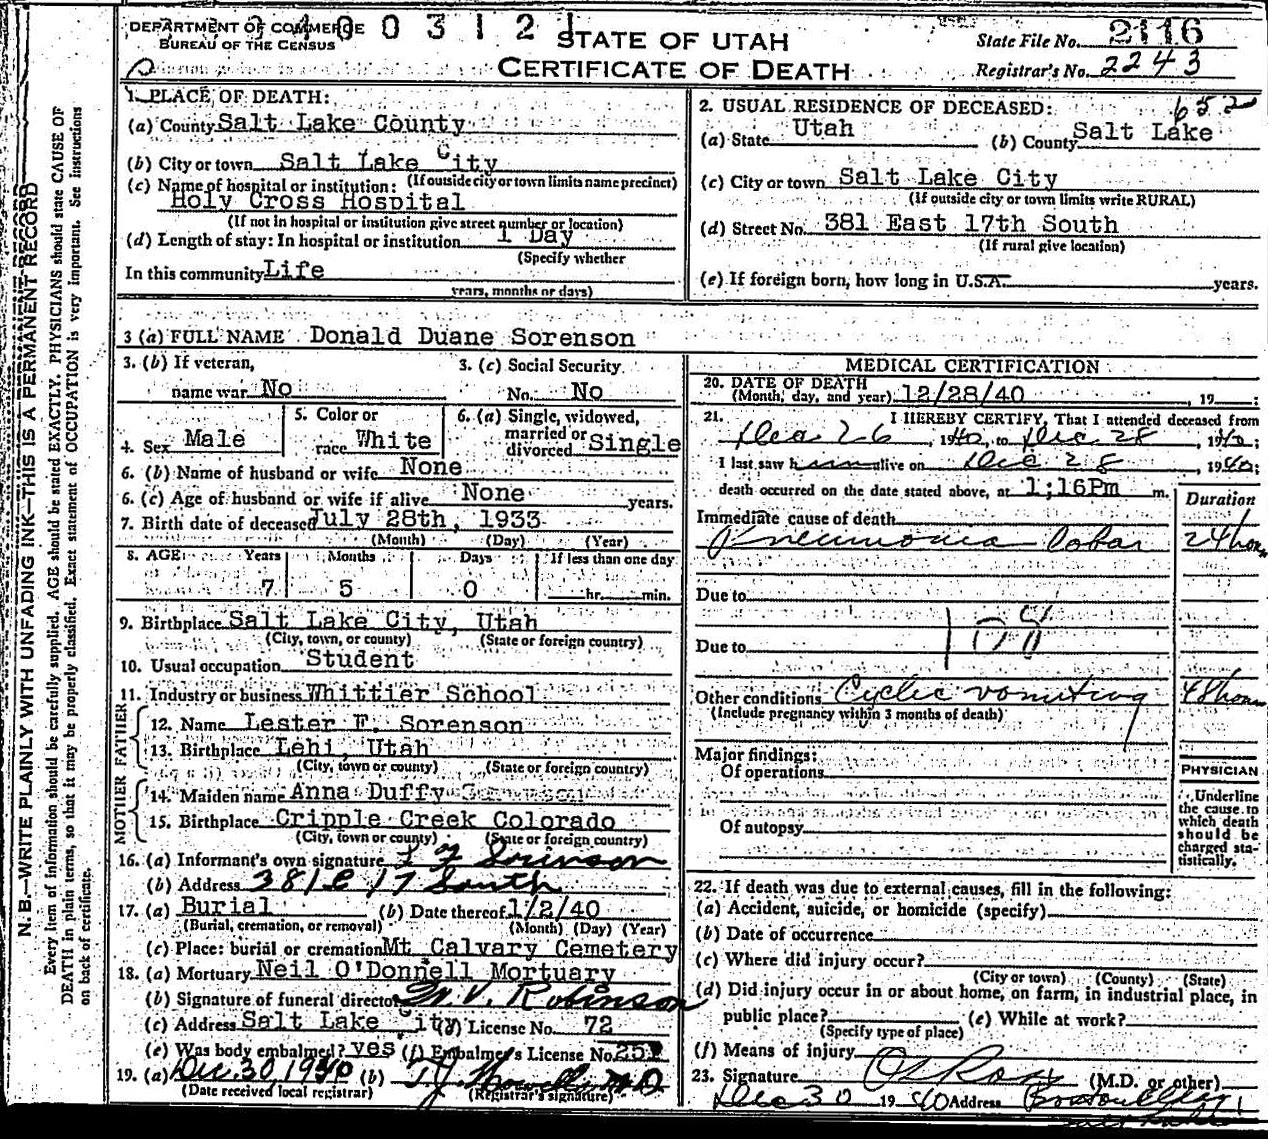 DEPARTMENT OF COMMERCE
BUREAU OF THE CENSUS
0 0 3 1 2 1
STATE OF UTAH
CERTIFICATE OF DEATH
State File No. 2116
Registrar's No. 2243
N. B.—WRITE PLAINLY WITH UNFADING INK—THIS IS A PERMANENT RECORD
Every item of information should be carefully supplied. AGE should be stated EXACTLY. PHYSICIANS should state CAUSE OF
DEATH in plain terms, so that it may be properly classified. Exact statement of OCCUPATION is very important. See instructions
on back of certificate.
1. PLACE OF DEATH:
(a) County Salt Lake County
(b) City or town Salt Lake City
(If outside city or town limits name precinct)
(c) Name of hospital or institution:
Holy Cross Hospital
(If not in hospital or institution give street number or location)
(d) Length of stay: In hospital or institution 1 Day
(Specify whether
In this community Life
years, months or days)
2. USUAL RESIDENCE OF DECEASED: 652
(a) State Utah (b) County Salt Lake
(c) City or town Salt Lake City
(If outside city or town limits write RURAL)
(d) Street No. 381 East 17th South
(If rural give location)
(e) If foreign born, how long in U.S.A. years.
3 (a) FULL NAME Donald Duane Sorenson
3. (b) If veteran,
name war No
3. (c) Social Security
No. No
4. Sex Male
5. Color or
race White
6. (a) Single, widowed,
married or
divorced Single
6. (b) Name of husband or wife None
6. (c) Age of husband or wife if alive None years.
7. Birth date of deceased July 28th, 1933
(Month) (Day) (Year)
8. AGE: Years Months Days If less than one day
7 5 0 hr. min.
9. Birthplace Salt Lake City, Utah
(City, town, or county) (State or foreign country)
10. Usual occupation Student
11. Industry or business Whittier School
FATHER
12. Name Lester F. Sorenson
13. Birthplace Lehi, Utah
(City, town or county) (State or foreign country)
MOTHER
14. Maiden name Anna Duffy
15. Birthplace Cripple Creek Colorado
(City, town or county) (State or foreign country)
16. (a) Informant's own signature L F Sorenson
(b) Address 381 E 17 South
17. (a) Burial (b) Date thereof 1/2/40
(Burial, cremation, or removal) (Month) (Day) (Year)
(c) Place: burial or cremation Mt Calvary Cemetery
18. (a) Mortuary Neil O'Donnell Mortuary
(b) Signature of funeral director M. V. Robinson
(c) Address Salt Lake City (d) License No. 72
(e) Was body embalmed? yes (f) Embalmer's License No.
19. (a) Dec. 30, 1940 (b) T.J. Howells M.D
(Date received local registrar) (Registrar's signature)
MEDICAL CERTIFICATION
20. DATE OF DEATH
(Month, day, and year) 12/28/40, 19 ;
21. I HEREBY CERTIFY, That I attended deceased from
Dec 26, 1940, to Dec. 28, 1940;
I last saw him alive on Dec 28, 1940;
death occurred on the date stated above, at 1;16Pm m.
Duration
Immediate cause of death
Pneumonia Lobar 24 hours
Due to
Due to 108
Other conditions Cyclic vomiting 48 hours
(Include pregnancy within 3 months of death)
Major findings:
Of operations
Of autopsy
PHYSICIAN
Underline
the cause to
which death
should be
charged sta-
tistically.
22. If death was due to external causes, fill in the following:
(a) Accident, suicide, or homicide (specify)
(b) Date of occurrence
(c) Where did injury occur?
(City or town) (County) (State)
(d) Did injury occur in or about home, on farm, in industrial place, in
public place? (e) While at work?
(Specify type of place)
(f) Means of injury
23. Signature (M.D. or other)
Dec 30 1940 Address